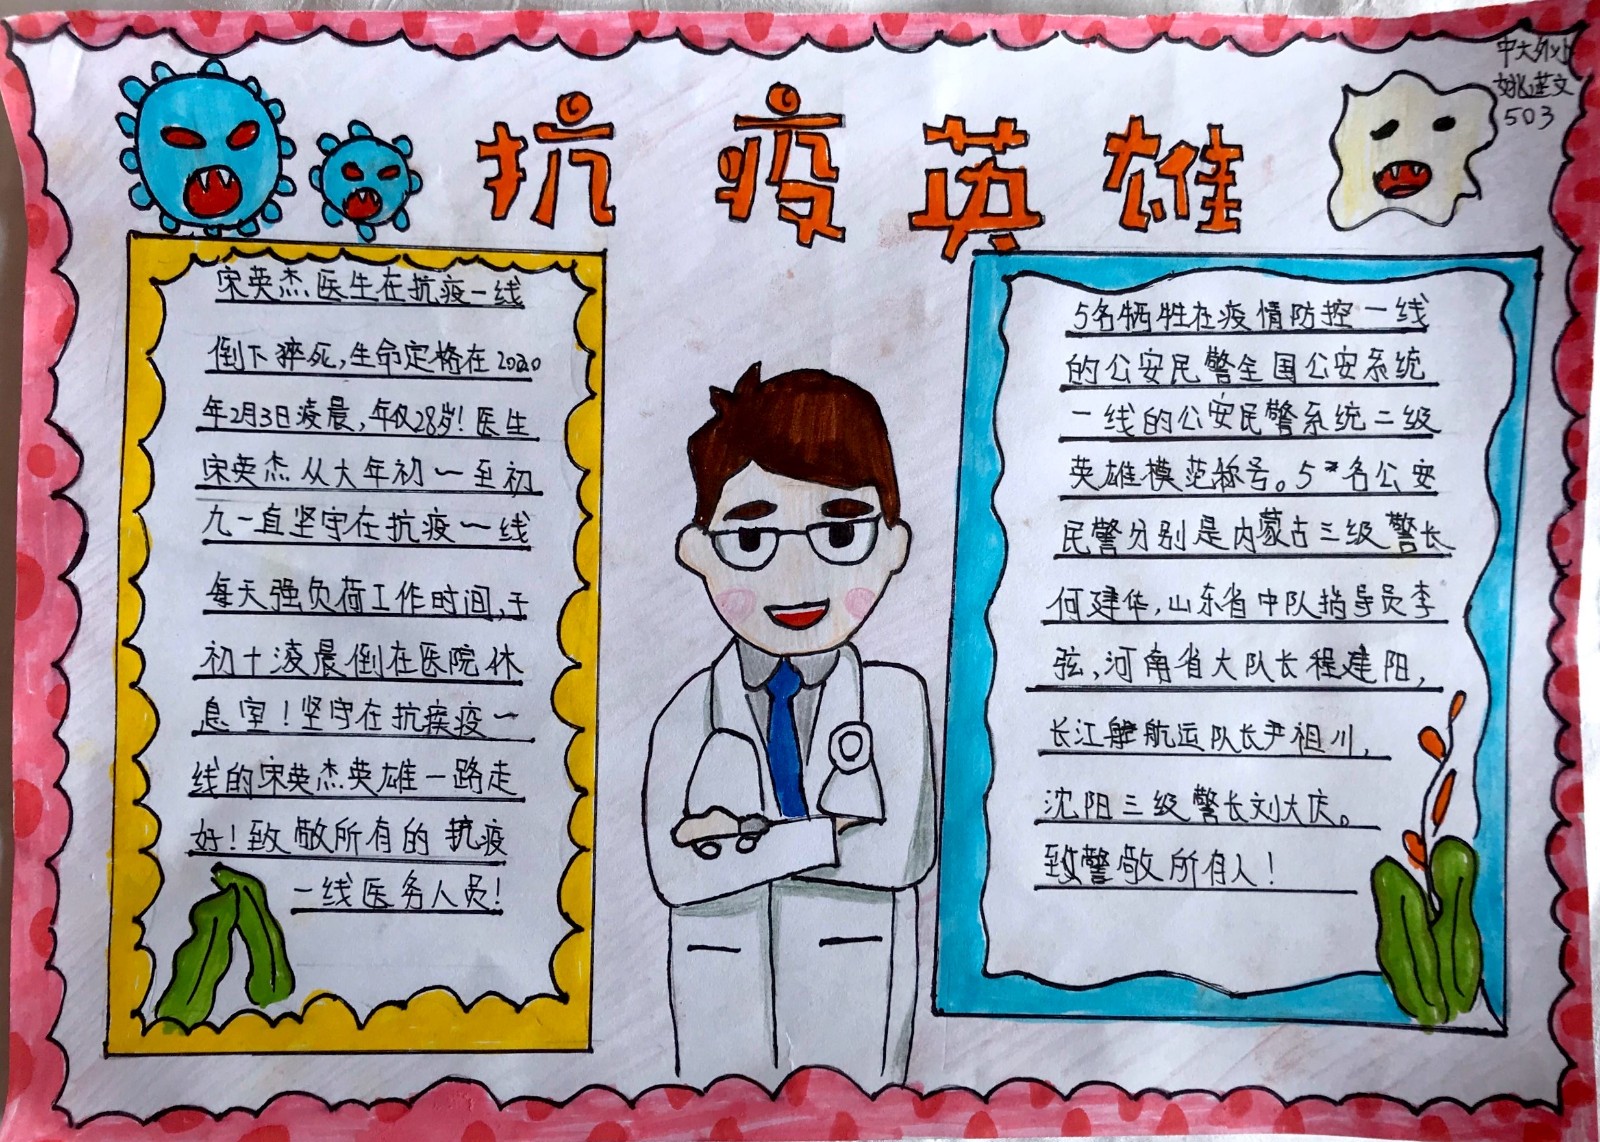 抗疫英雄
中大外小
姚莲文
503
宋英杰医生在抗疫一线
倒下猝死,生命定格在2020
年2月3日凌晨,年仅28岁!医生
宋英杰从大年初一至初
九一直坚守在抗疫一线
每天强负荷工作时间,于
初十凌晨倒在医院休
息室!坚守在抗疾疫一
线的宋英杰英雄一路走
好!致敬所有的抗疫
一线医务人员!
5名牺牲在疫情防控一线
的公安民警全国公安系统
一线的公安民警系统二级
英雄模范称号。5名公安
民警分别是内蒙古三级警长
何建华,山东省中队指导员李
弦,河南省大队长程建阳,
长江航运队长尹祖川,
沈阳三级警长刘大庆。
致警敬所有人!